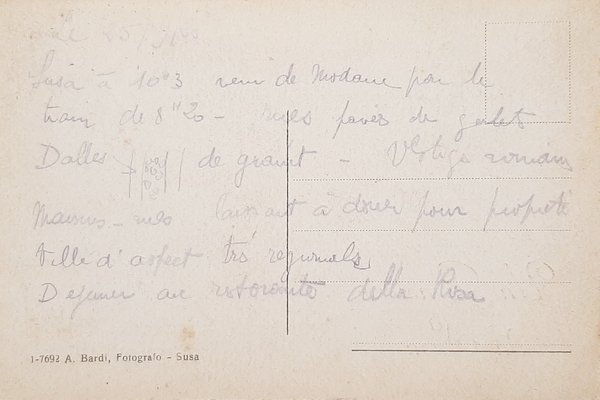 le
Susa à 10h3 venu de Modane par le
train de 8H20 - rues pavés de galets
Dalles de granit - Vestiges romains
Maisons - rues laissant à désirer pour propreté
Ville d'aspect très regionals
Dejeuner au ristorante della Rosa
1-7692 A. Bardi, Fotografo - Susa